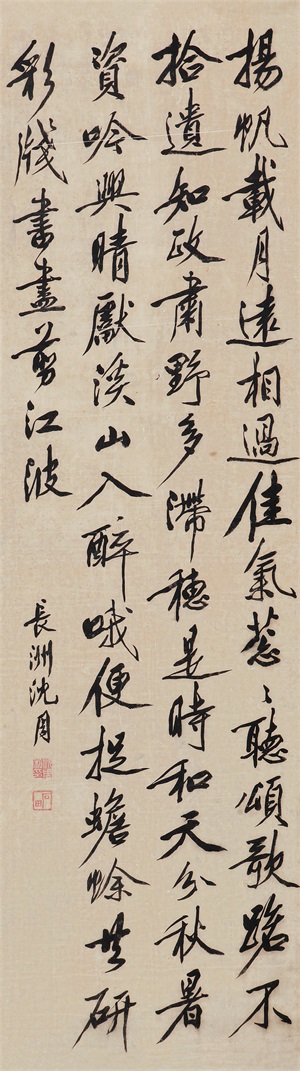 揚帆載月遠相過佳氣蔥〻聽頌歌路不
拾遺知政肅野多滯穗是時和天分秋暑
資吟興晴獻溪山入醉哦便捉蟾蜍共研
彩牋書盡剪江波
長洲沈周